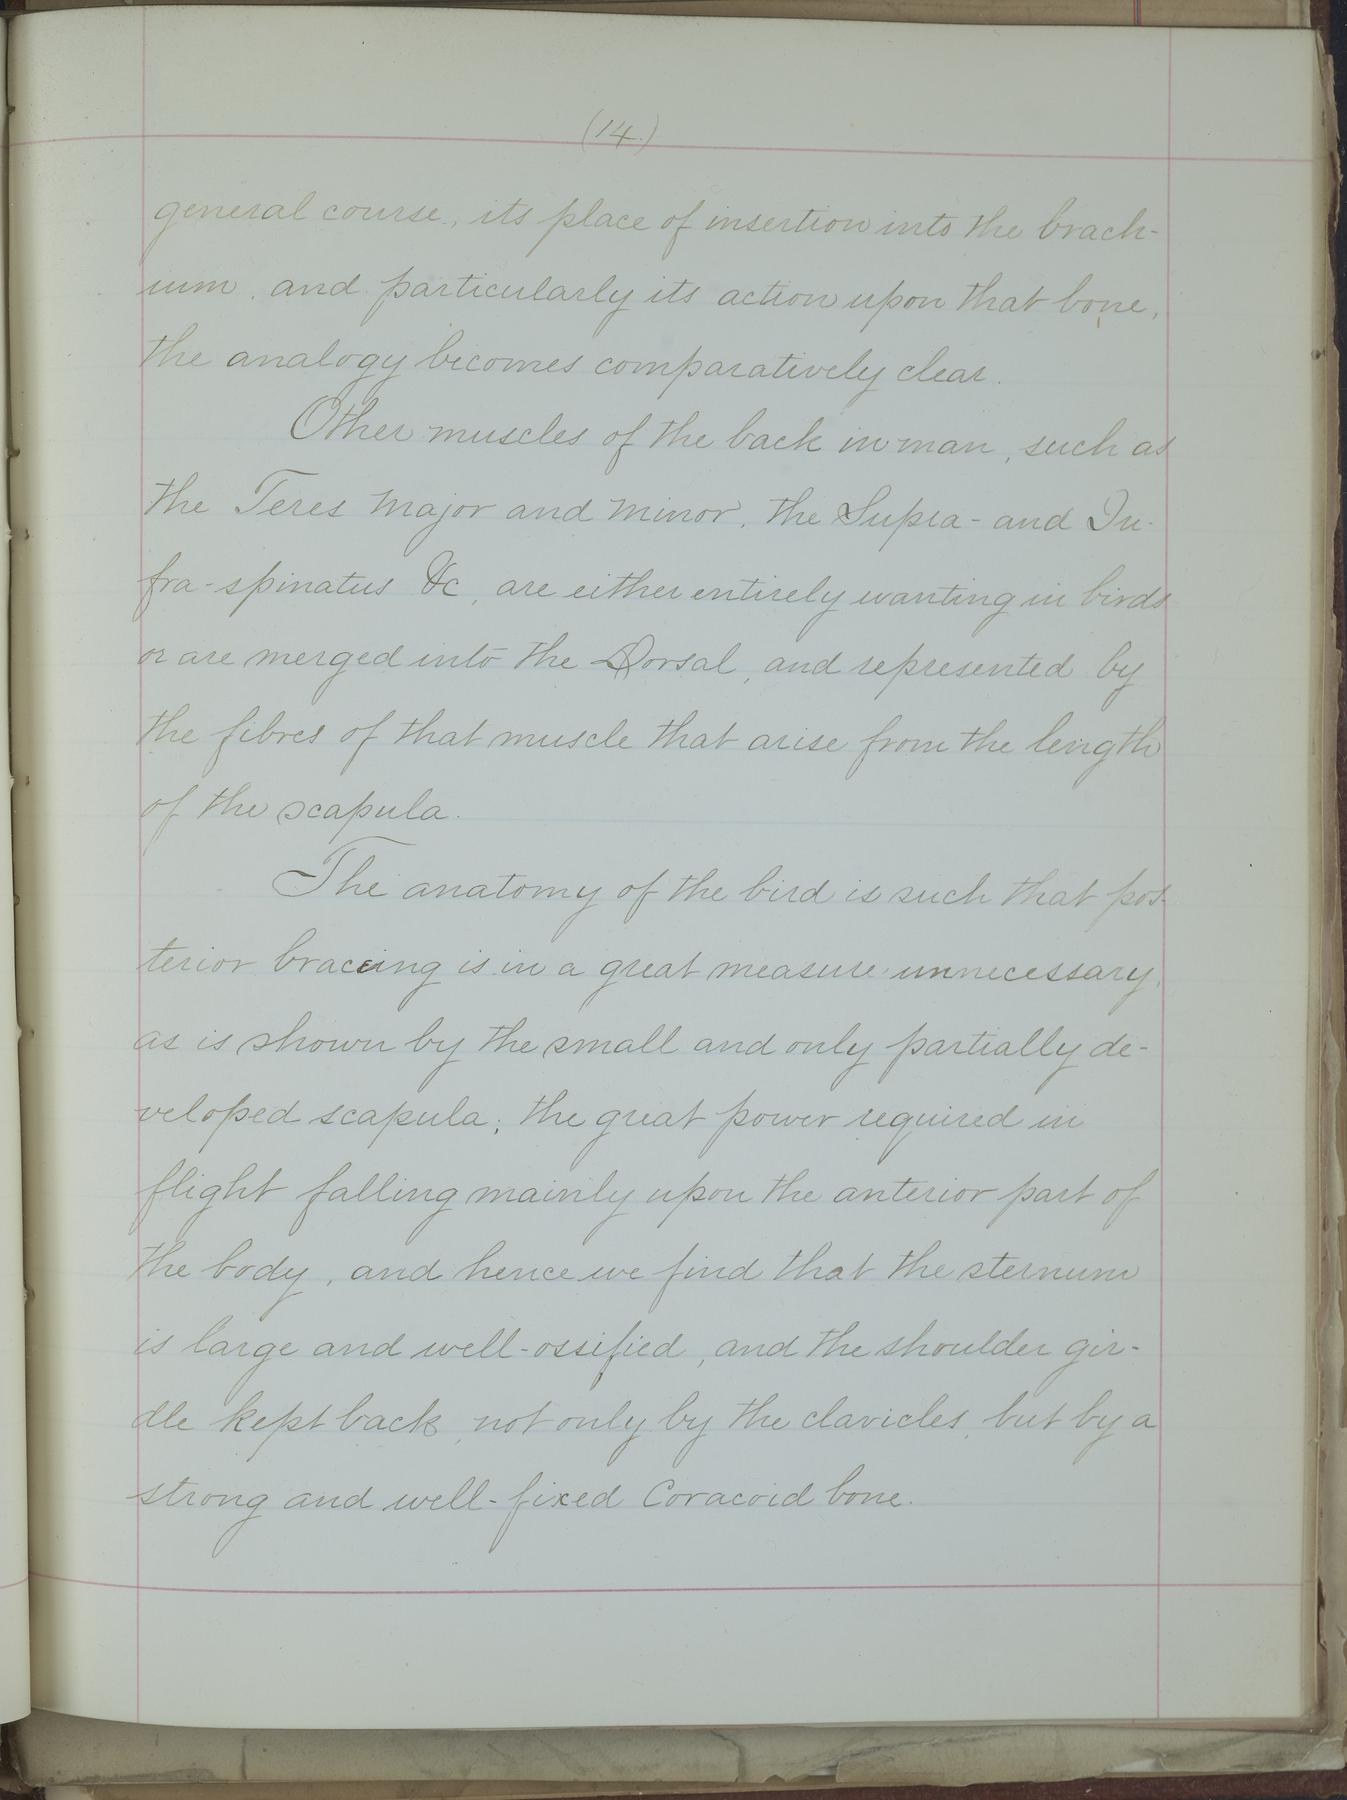 (14.)
general course, its place of insertion into the brach-
ium, and particularly its action upon that bone,
the analogy becomes comparatively clear.
Other muscles of the back in man, such as
the Teres Major and Minor, the Supra- and In-
fra-spinatus &c, are either entirely wanting in birds
or are merged into the Dorsal, and represented by
the fibres of that muscle that arise from the length
of the scapula.
The anatomy of the bird is such that pos-
terior bracing is in a great measure unnecessary,
as is shown by the small and only partially de-
veloped scapula; the great power required in
flight falling mainly upon the anterior part of
the body, and hence we find that the sternum
is large and well-ossified, and the shoulder gir-
dle kept back, not only by the clavicles, but by a
strong and well-fixed Coracoid bone.